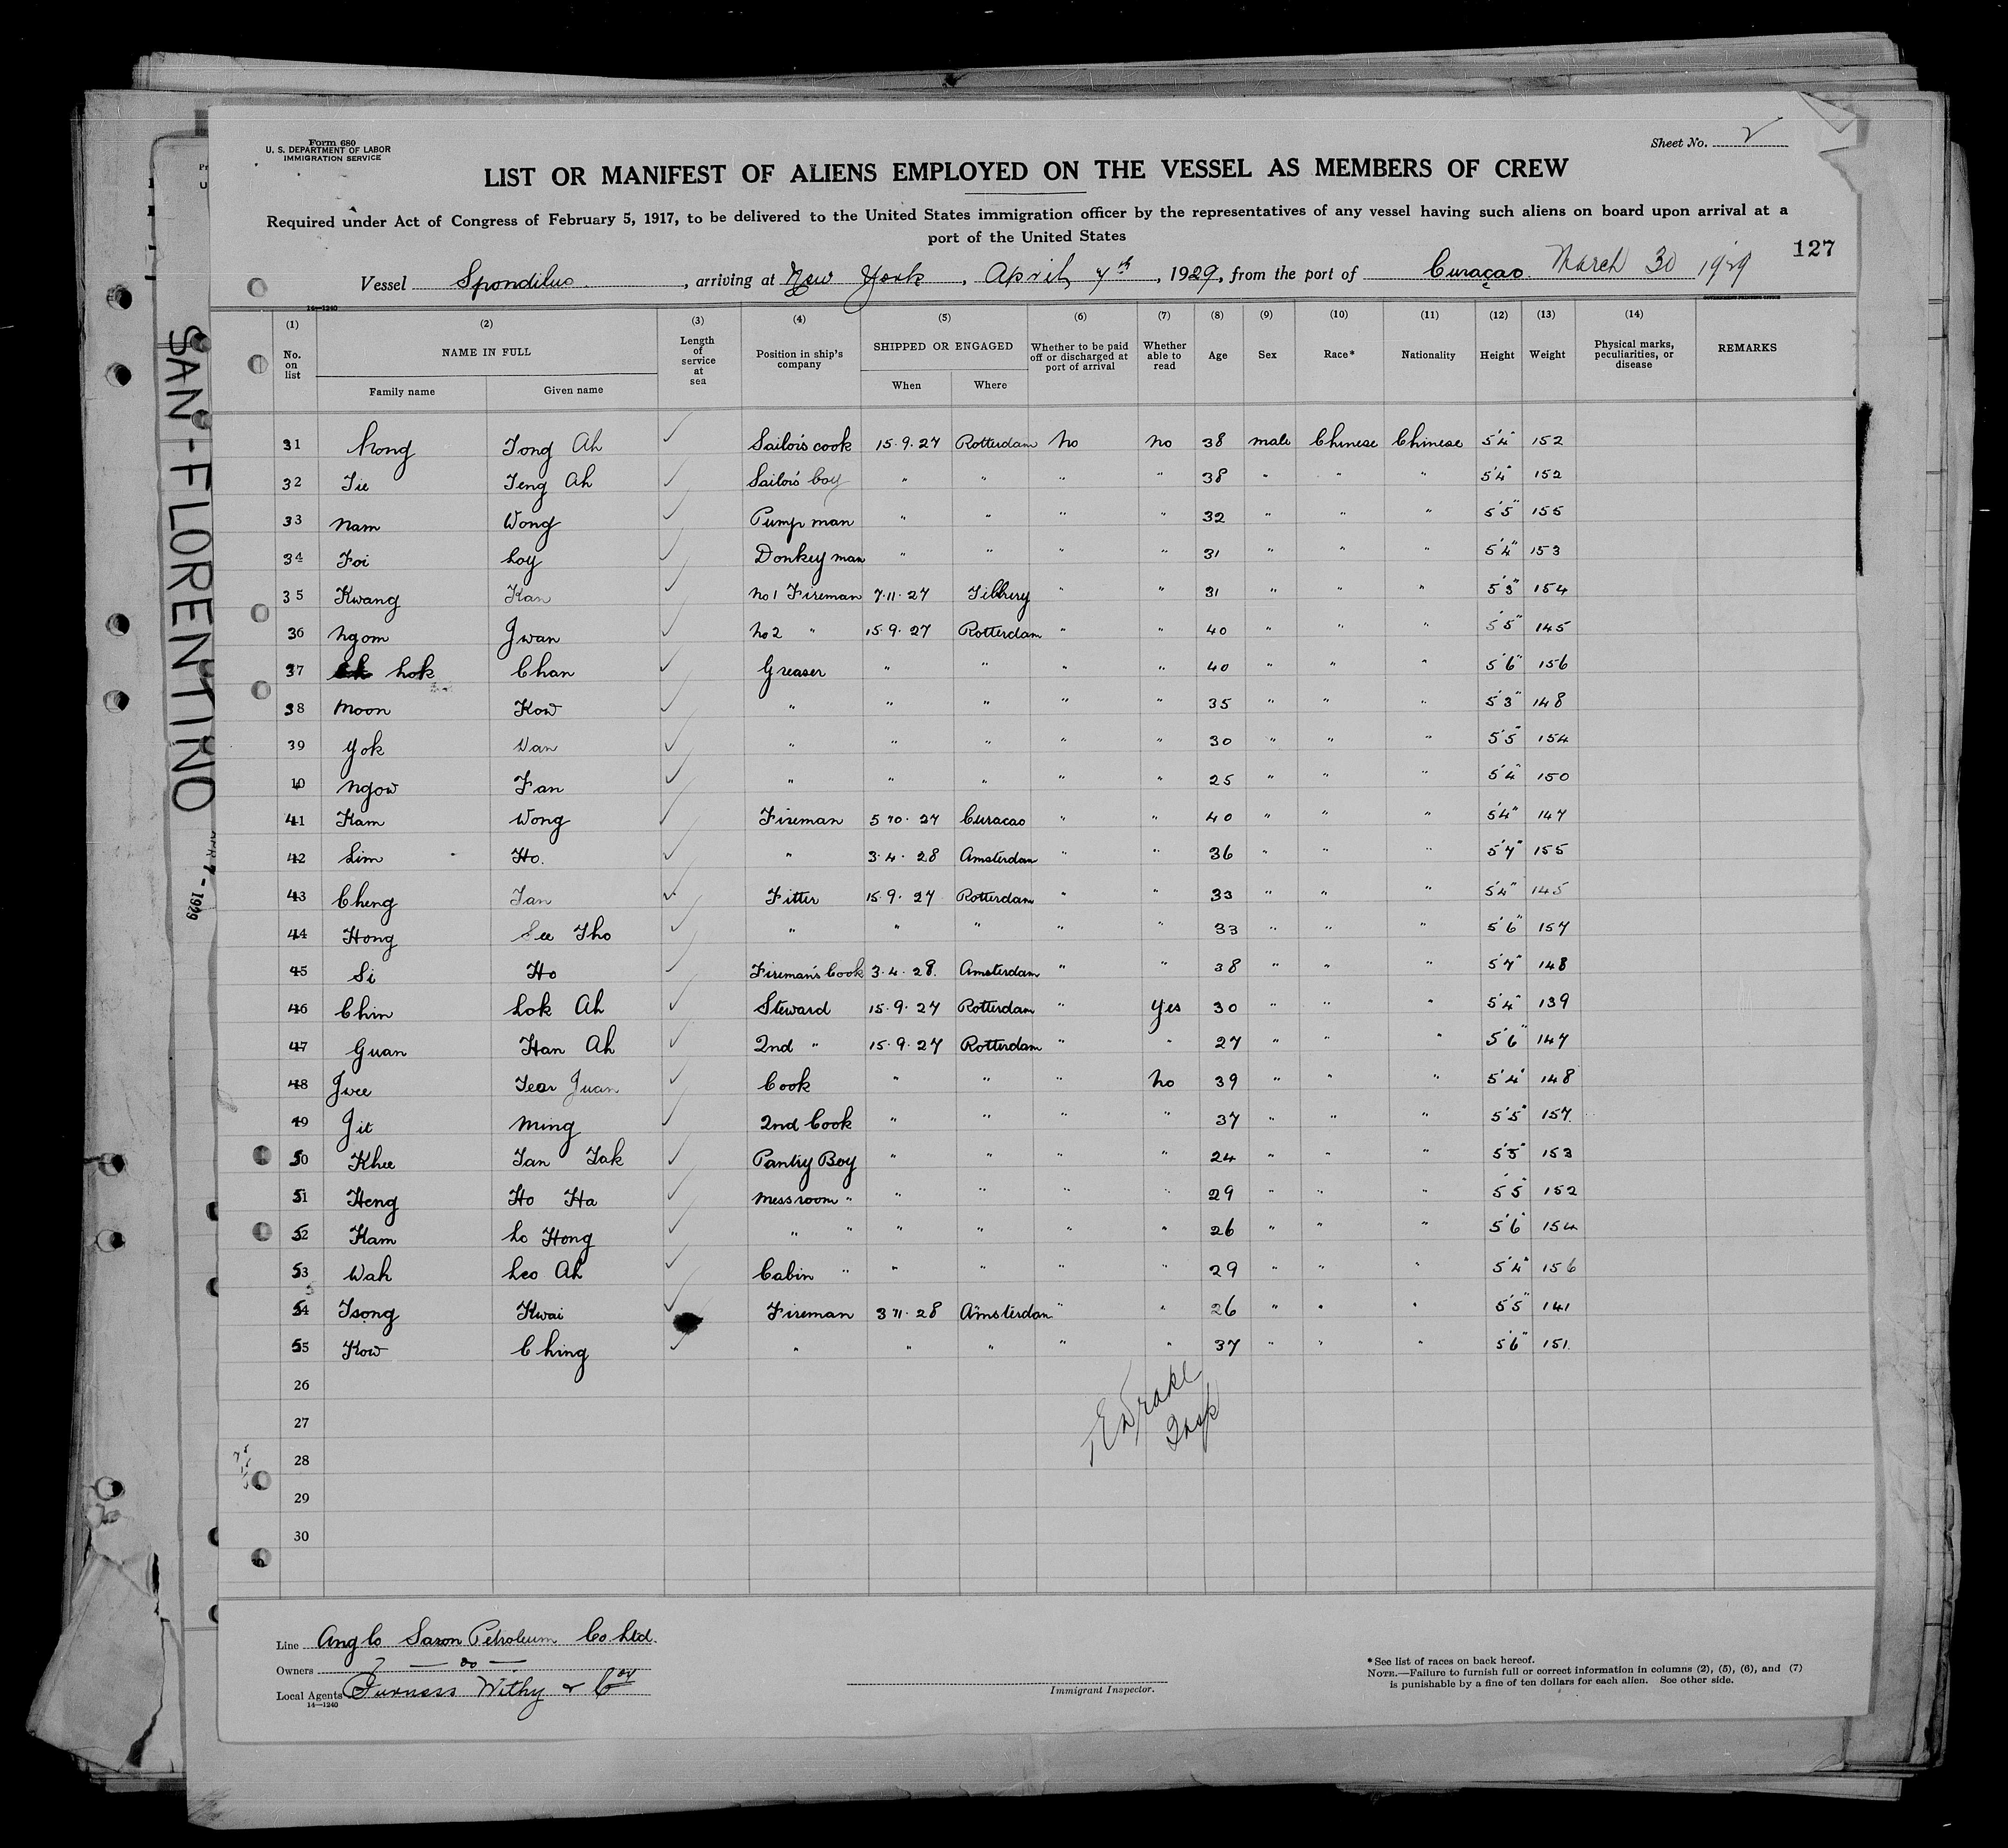 Form 680
U. S. DEPARTMENT OF LABOR
IMMIGRATION SERVICE
Sheet No. 2
LIST OR MANIFEST OF ALIENS EMPLOYED ON THE VESSEL AS MEMBERS OF CREW
Required under Act of Congress of February 5, 1917, to be delivered to the United States immigration officer by the representatives of any vessel having such aliens on board upon arrival at a
port of the United States
127
Vessel Spondilus, arriving at New York, April 7th, 1929, from the port of Curaçao. March 30 1929
14—1240
GOVERNMENT PRINTING OFFICE
(1) (2) (3) (4) (5) (6) (7) (8) (9) (10) (11) (12) (13) (14)
No. on list NAME IN FULL Length of service at sea Position in ship's company SHIPPED OR ENGAGED Whether to be paid off or discharged at port of arrival Whether able to read Age Sex Race* Nationality Height Weight Physical marks, peculiarities, or disease REMARKS
Family name Given name When Where
31 Kong Tong Ah ✓ Sailor's cook 15·9·27 Rotterdam No No 38 male Chinese Chinese 5'4" 152
32 Tie Teng Ah ✓ Sailor's boy " " " " 38 " " " 5'4" 152
33 Nam Wong ✓ Pump man " " " " 32 " " " 5'5" 155
34 Foi Loy ✓ Donkey man " " " " 31 " " " 5'4" 153
35 Kwang Kan ✓ No 1 Fireman 7·11·27 Tilbury " " 31 " " " 5'3" 154
36 Ngom Jwan ✓ No 2 " 15·9·27 Rotterdam " " 40 " " " 5'5" 145
37 hok Chan ✓ Greaser " " " " 40 " " " 5'6" 156
38 Moon Kow ✓ " " " " " 35 " " " 5'3" 148
39 Yok Van ✓ " " " " " 30 " " " 5'5" 154
40 Ngow Fan ✓ " " " " " 25 " " " 5'4" 150
41 Kam Wong ✓ Fireman 5 10·27 Curacao " " 40 " " " 5'4" 147
42 Lim Ho. ✓ " 3·4·28 Amsterdam " " 36 " " " 5'7" 155
43 Cheng Tan ✓ Fitter 15·9·27 Rotterdam " " 33 " " " 5'4" 145
44 Hong See Tho ✓ " " " " " 33 " " " 5'6" 157
45 Si Ho ✓ Fireman's Cook 3·4·28. Amsterdam " " 38 " " " 5'7" 148
46 Chin Lok Ah ✓ Steward 15·9·27 Rotterdam " Yes 30 " " " 5'4" 139
47 Guan Han Ah ✓ 2nd " 15·9·27 Rotterdam " " 27 " " " 5'6" 147
48 Jwee Tear Juan ✓ Cook " " " No 39 " " " 5'4" 148
49 Jit Ming ✓ 2nd Cook " " " " 37 " " " 5'5" 157.
50 Khee Tan Tak ✓ Pantry Boy " " " " 24 " " " 5'5" 153
51 Heng Ho Ha ✓ Messroom " " " " " 29 " " " 5'5" 152
52 Kam Lo Hong ✓ " " " " " " 26 " " " 5'6" 154
53 Wah Leo Ah ✓ Cabin " " " " " 29 " " " 5'4" 156
54 Tsong Kwai ✓ Fireman 3 11·28 Amsterdam " " 26 " " " 5'5" 141
55 Kow Ching ✓ " " " " " 37 " " " 5'6" 151.
26
27
28
29
30
E Drake
Insp
Line Anglo Saxon Petroleum Co Ltd.
Owners — do —
Local Agents Furness Withy & Coy
14—1240
Immigrant Inspector.
* See list of races on back hereof.
NOTE.—Failure to furnish full or correct information in columns (2), (5), (6), and (7)
is punishable by a fine of ten dollars for each alien. See other side.
SAN-FLORENTINO
APR 7 - 1929